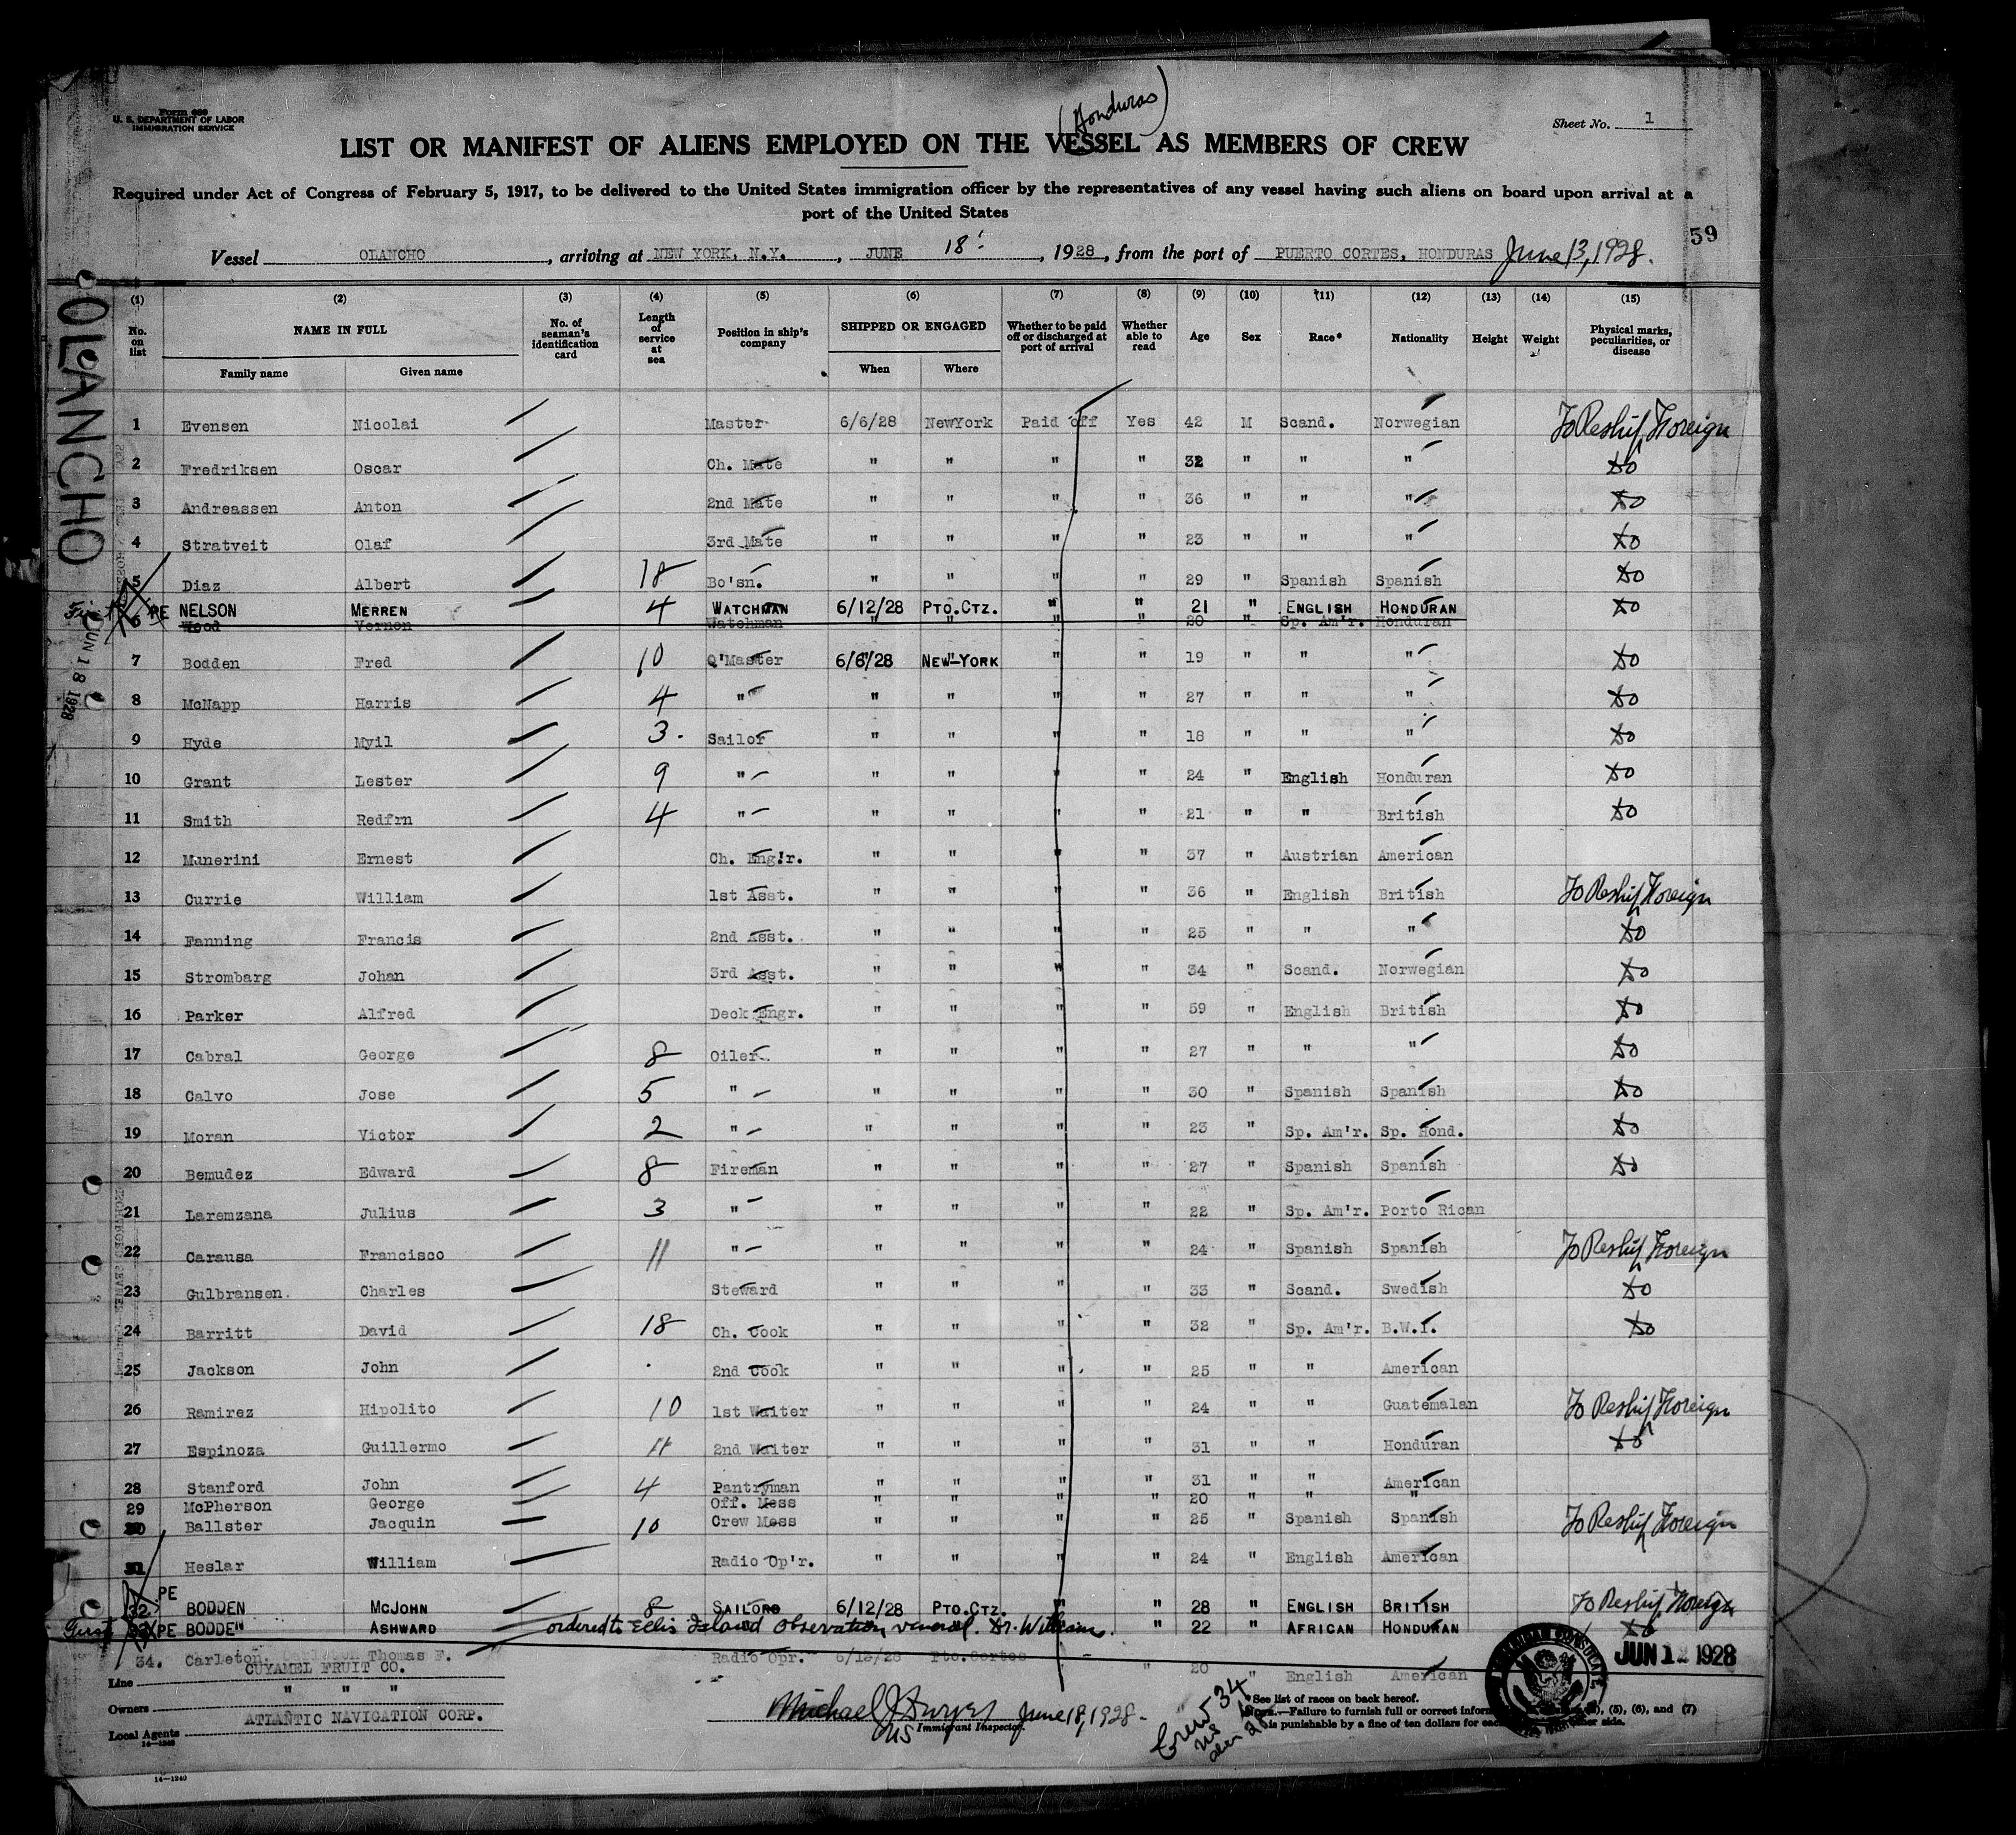 Form 680
U. S. DEPARTMENT OF LABOR
IMMIGRATION SERVICE
(Honduras)
Sheet No. 1
LIST OR MANIFEST OF ALIENS EMPLOYED ON THE VESSEL AS MEMBERS OF CREW
Required under Act of Congress of February 5, 1917, to be delivered to the United States immigration officer by the representatives of any vessel having such aliens on board upon arrival at a
port of the United States
59
Vessel OLANCHO, arriving at NEW YORK, N.Y., JUNE 18, 1928, from the port of PUERTO CORTES, HONDURAS June 13, 1928.
OLANCHO
JUN 18 1928
(1) (2) (3) (4) (5) (6) (7) (8) (9) (10) (11) (12) (13) (14) (15)
No. on list NAME IN FULL Family name Given name No. of seaman's identification card Length of service at sea Position in ship's company SHIPPED OR ENGAGED When Where Whether to be paid off or discharged at port of arrival Whether able to read Age Sex Race* Nationality Height Weight Physical marks, peculiarities, or disease
1 Evensen Nicolai Master 6/6/28 NewYork Paid off Yes 42 M Scand. Norwegian To Reship Foreign
2 Fredriksen Oscar Ch. Mate " " " " 32 " " " do
3 Andreassen Anton 2nd Mate " " " " 36 " " " do
4 Stratveit Olaf 3rd Mate " " " " 23 " " " do
5 Diaz Albert 18 Bo'sn. " " " " 29 " Spanish Spanish do
PE NELSON MERREN 4 WATCHMAN 6/12/28 PTO.CTZ. " " 21 " ENGLISH HONDURAN do
6 Wood Vernon Watchman " " " " 20 " Sp. Am'r. Honduran
7 Bodden Fred 10 Q'Master 6/6/28 NEW-YORK " " 19 " " " do
8 McNapp Harris 4 " " " " " 27 " " " do
9 Hyde Myil 3. Sailor " " " " 18 " " " do
10 Grant Lester 9 " " " " " 24 " English Honduran do
11 Smith Redfrn 4 " " " " " 21 " " British do
12 Munerini Ernest Ch. Eng'r. " " " " 37 " Austrian American
13 Currie William 1st Asst. " " " " 36 " English British To Reship Foreign
14 Fanning Francis 2nd Asst. " " " " 25 " " " do
15 Strombarg Johan 3rd Asst. " " " " 34 " Scand. Norwegian do
16 Parker Alfred Deck Engr. " " " " 59 " English British do
17 Cabral George 8 Oiler " " " " 27 " " " do
18 Calvo Jose 5 " " " " " 30 " Spanish Spanish do
19 Moran Victor 2 " " " " " 23 " Sp. Am'r. Sp. Hond. do
20 Bemudez Edward 8 Fireman " " " " 27 " Spanish Spanish do
21 Laremzana Julius 3 " " " " " 22 " Sp. Am'r. Porto Rican
22 Carausa Francisco 11 " " " " " 24 " Spanish Spanish To Reship Foreign
23 Gulbransen. Charles Steward " " " " 33 " Scand. Swedish do
24 Barritt David 18 Ch. Cook " " " " 32 " Sp. Am'r. B.W.I. do
25 Jackson John 2nd Cook " " " " 25 " " American
26 Ramirez Hipolito 10 1st Waiter " " " " 24 " " Guatemalan To Reship Foreign
27 Espinoza Guillermo 11 2nd Waiter " " " " 31 " " Honduran do
28 Stanford John 4 Pantryman " " " " 31 " " American
29 McPherson George Off. Mess " " " " 20 " " "
30 Ballster Jacquin 10 Crew Mess " " " " 25 " Spanish Spanish To Reship Foreign
31 Heslar William Radio Op'r. " " " " 24 " English American
32 PE BODDEN MCJOHN 8 SAILOR 6/12/28 PTO.CTZ. " " 28 " ENGLISH BRITISH To Reship Foreign
PE BODDEN ASHWARD ordered to Ellis Island Observation venereal. Dr. Williams. " 22 " AFRICAN HONDURAN do
34. Carleton, Thomas F. Radio Opr. 6/13/28 Pto.Cortes " 20 English American
JUN 12 1928
Line CUYAMEL FRUIT CO.
Owners " " "
Local Agents ATLANTIC NAVIGATION CORP.
14—1240
Michael J. Dwyer June 18, 1928.
US Immigrant Inspector.
Crew 34
US
*See list of races on back hereof.
NOTE.—Failure to furnish full or correct (5), (6), and (7)
is punishable by a fine of ten dollars for side.
14—1240